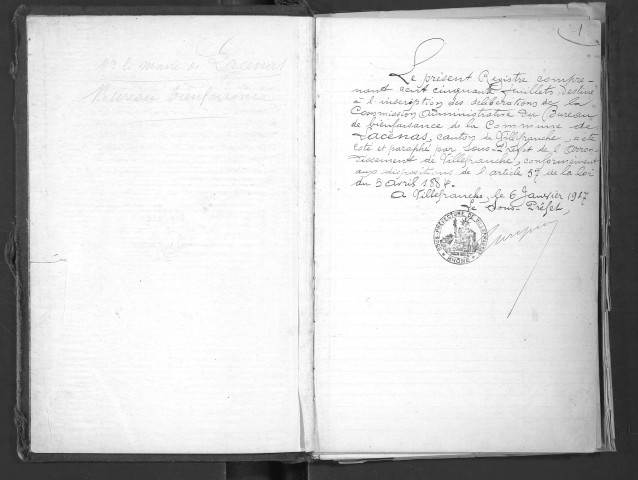 Mr le Maire de Lacenas
Bureau Bienfaisance
1
Le présent Registre compre-
nant cent cinquante feuillets destiné
à l'inscription des délibérations de la
Commission Administrative du Bureau
de bienfaisance de la Commune de
Lacenas, canton de Villefranche, a été
coté et paraphé par Sous-Préfet de l'Arron-
dissement de Villefranche, conformément
aux dispositions de l'article 57 de la loi
du 5 Avril 1884.
A Villefranche, le 6 Janvier 1917
Le Sous-Préfet,
SOUS-PRÉFECTURE DE VILLEFRANCHE
RHÔNE